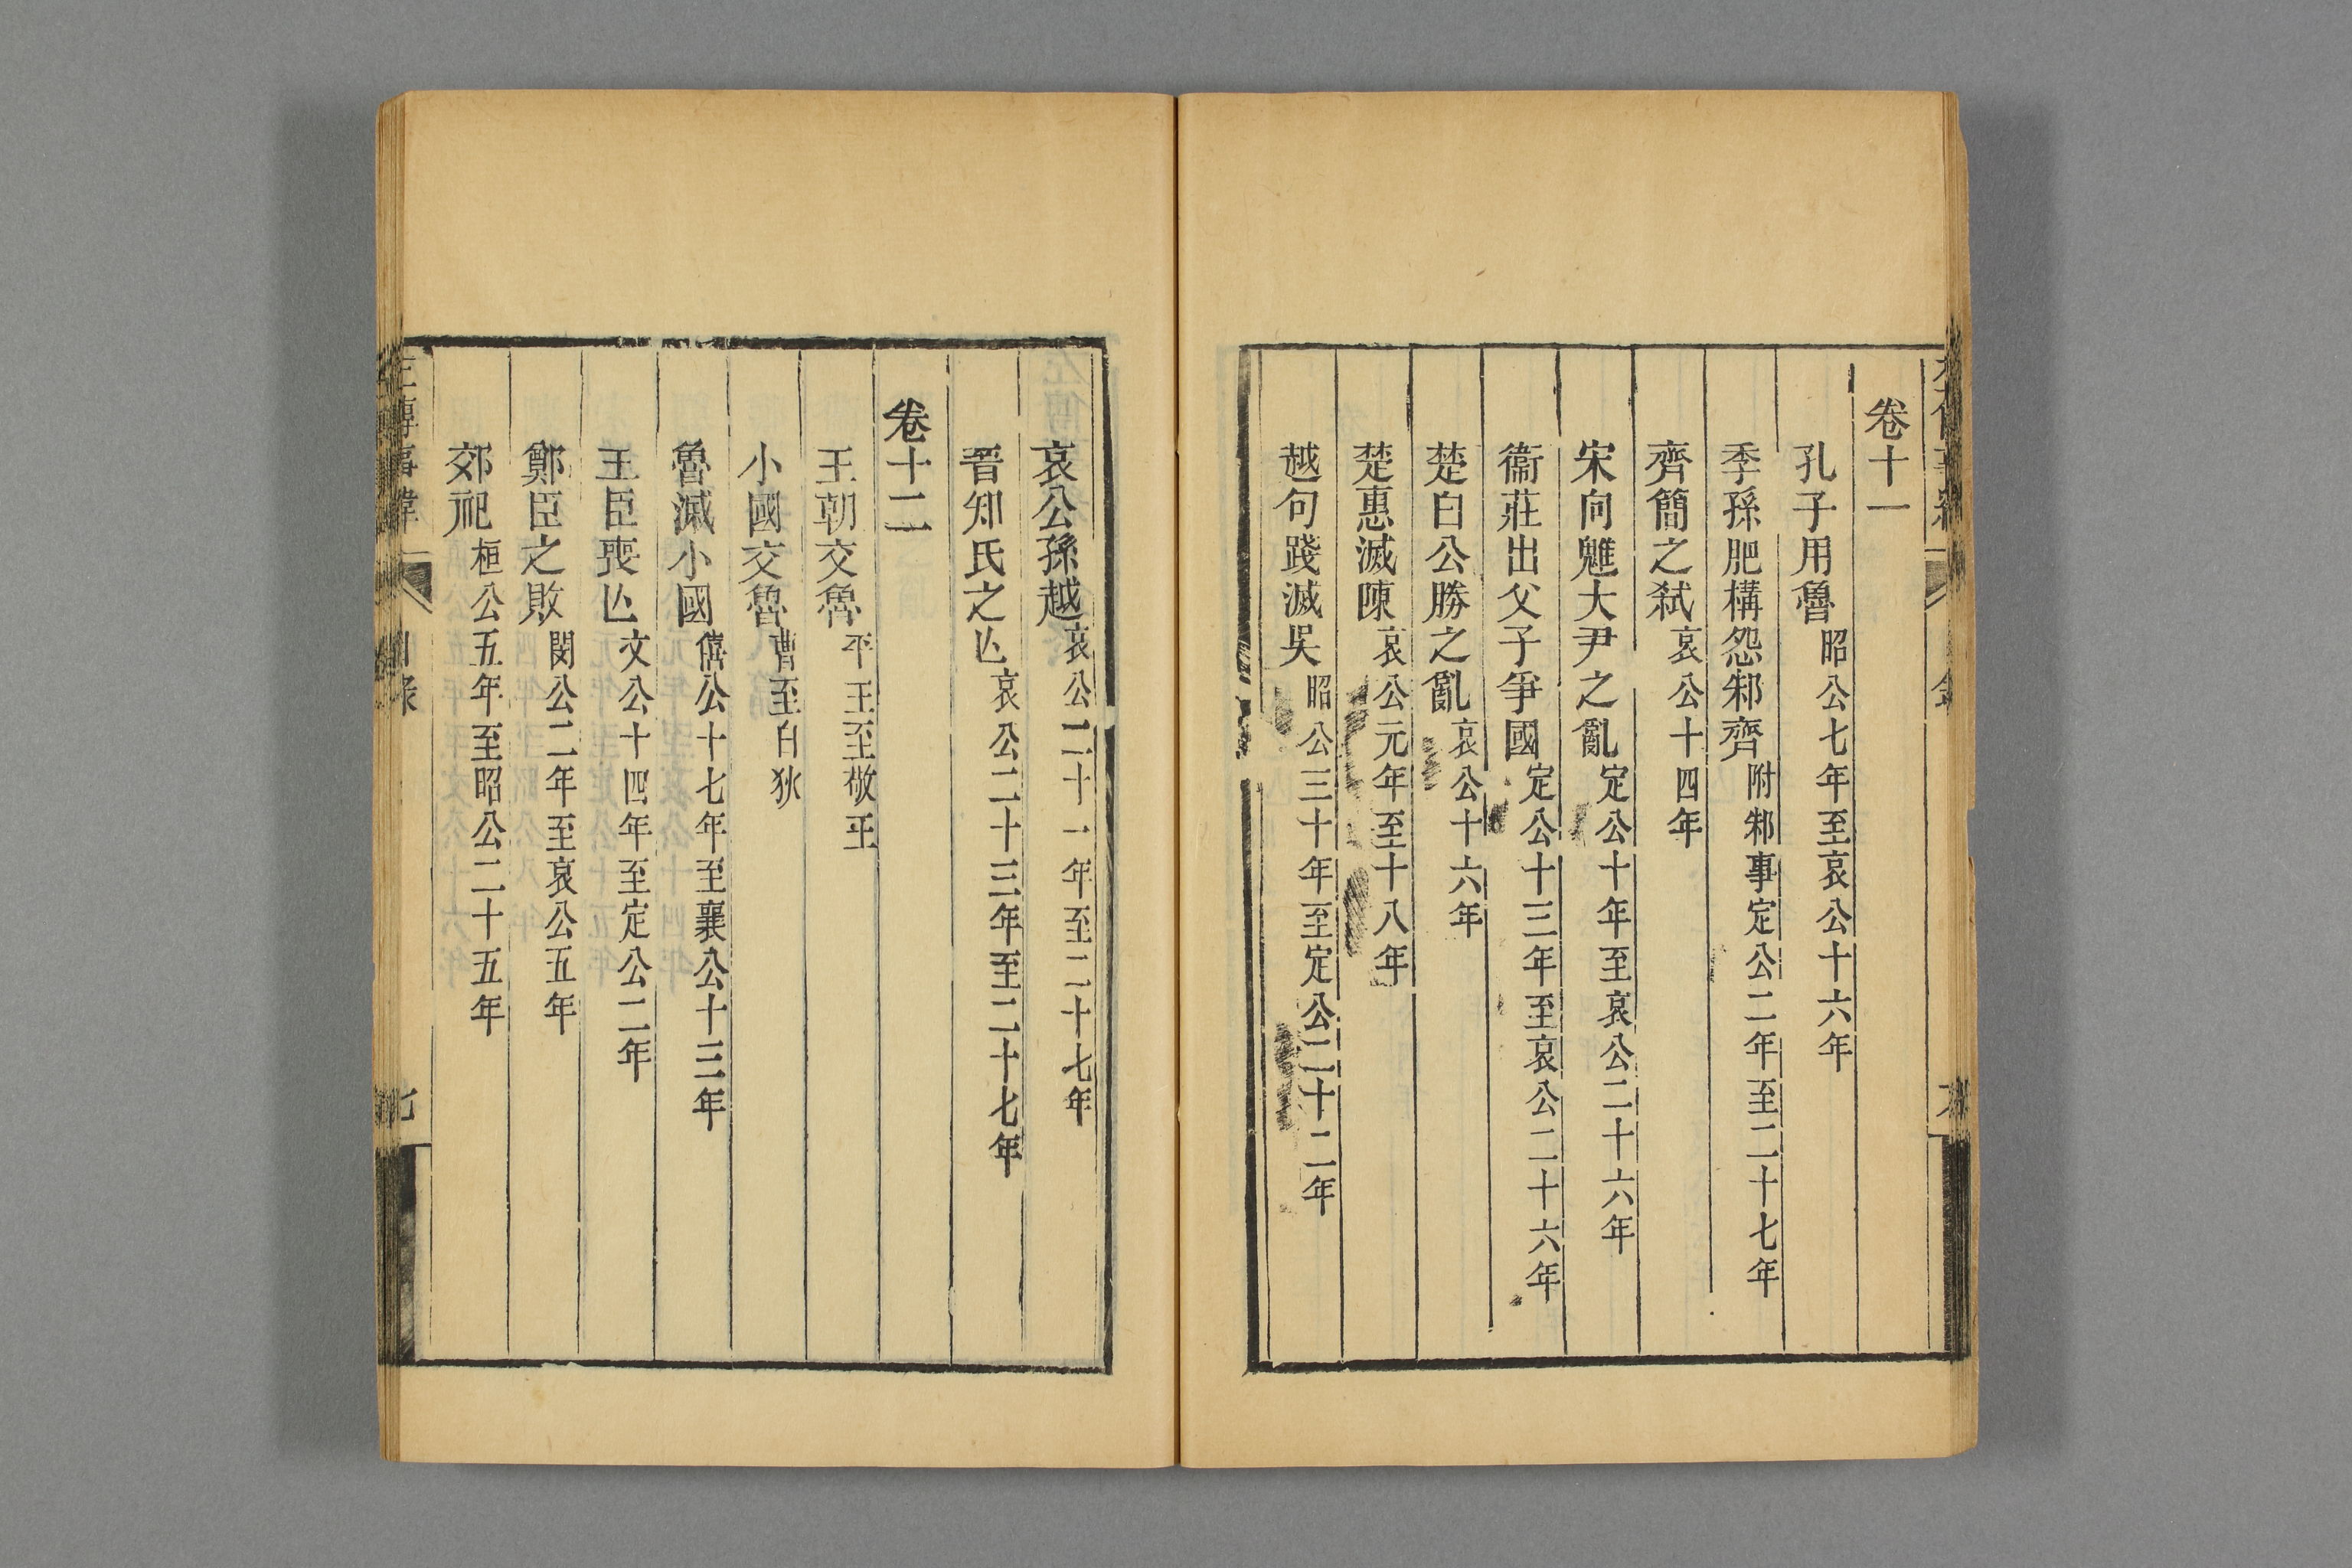 卷十一
孔子用魯昭公七年至哀公十六年
季孫肥構怨邾齊附邾事定公二年至二十七年
齊簡之弑哀公十四年
宋向魋大尹之亂定公十年至哀公二十六年
衞莊出父子爭國定公十三年至哀公二十六年
楚白公勝之亂哀公十六年
楚惠滅陳哀公元年至十八年
越句踐滅吳昭公三十年至定公二十二年
哀公孫越哀公二十一年至二十七年
晉知氏之亾哀公二十三年至二十七年
卷十二
王朝交魯平王至敬王
小國交魯曹至白狄
魯滅小國僖公十七年至襄公十三年
王臣喪亾文公十四年至定公二年
鄭臣之敗閔公二年至哀公五年
郊祀桓公五年至昭公二十五年
左傳事緯
目錄